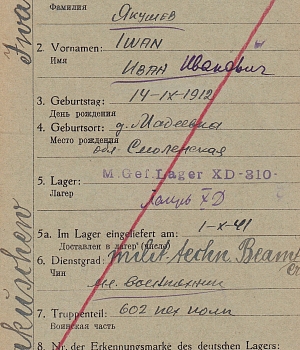 Фамилия Якушев
2. Vornamen: IWAN
Имя Иван Иванович
3. Geburtstag: 14-IX-1912
День рождения
4. Geburtsort: д. Мадеевка
Место рождения обл. Смоленская
5. Lager: M.Gef.Lager XD-310-
Лагер Лагерь XD
5a. Im Lager eingeliefert am: 1-X-41
Доставлен в лагер (число)
6. Dienstgrad: milit. techn. Beamter
Чин воентехник
7. Truppenteil: 602 пех полк
Воинская часть
8. Nr. der Erkennungsmarke des deutschen Lagers:
Iwa
kuschew